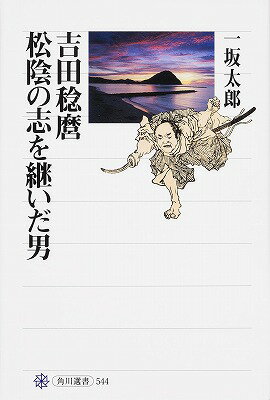 吉田稔麿
松陰の志を継いだ男
一坂太郎
角川選書 544